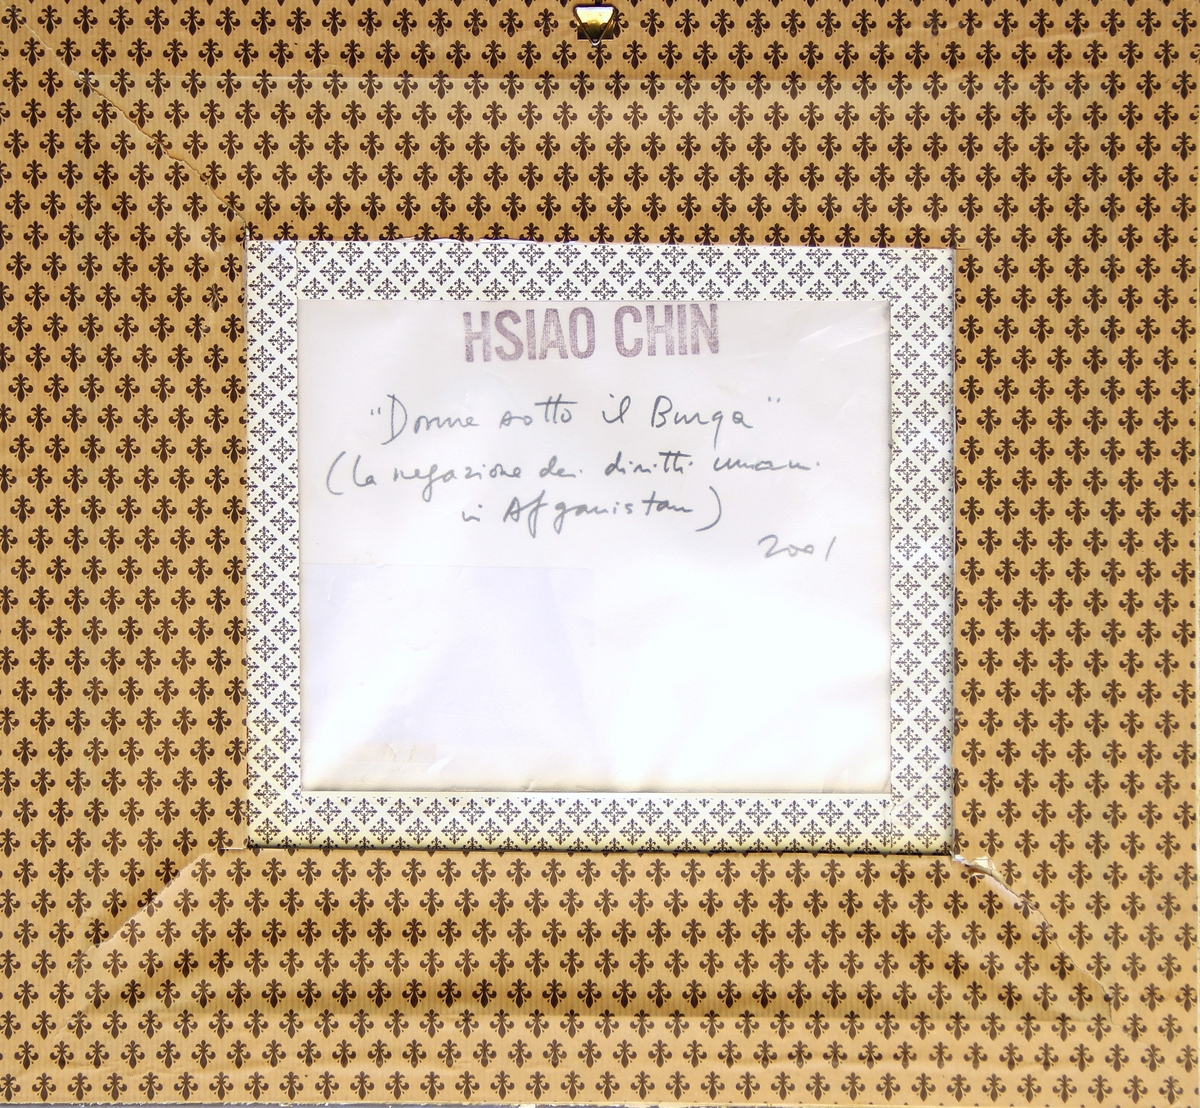 HSIAO CHIN
"Donne sotto il Burqa"
(la negazione dei diritti umani
in Afganistan)
2001